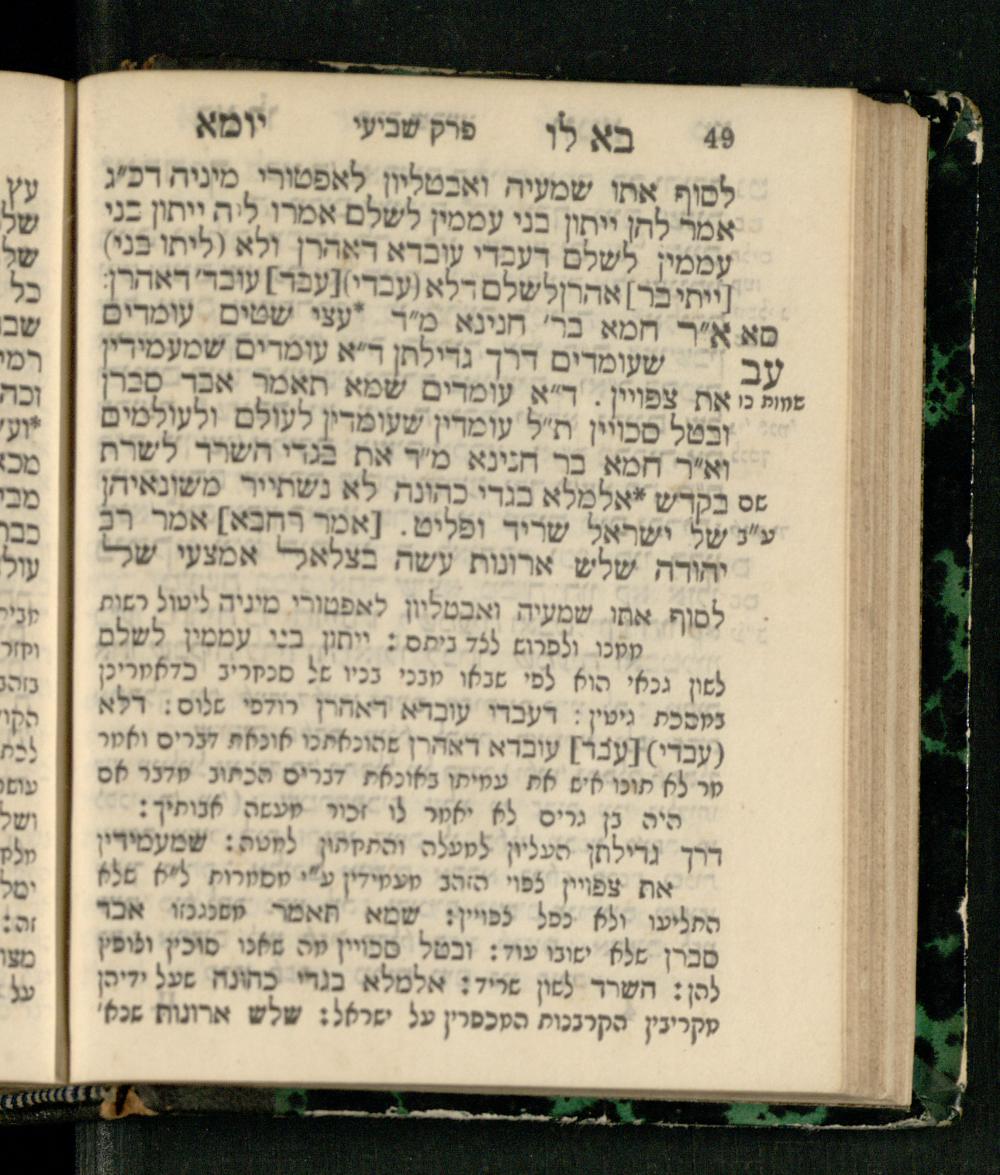 49 בא לו פרק שביעי יומא
לסוף אתו שמעיה ואבטליון לאפטורי מיניה דכ״ג
אמר להן ייתון בני עממין לשלם אמרו ליה ייתון בני
עממין לשלם דעבדי עובדא דאהרן ולא (ליתו בני)
[ייתי בר] אהרן לשלם דלא (עבדי) [עבד] עובד׳ דאהרן:
סא א״ר חמא בר׳ חנינא מ״ד *עצי שטים עומדים
עב שעומדים דרך גדילתן ד״א עומדים שמעמידין
שמות כו את צפויין. ד״א עומדים שמא תאמר אבד סברן
ובטל סכויין ת״ל עומדין שעומדין לעולם ולעולמים
וא״ר חמא בר חנינא מ״ד את בגדי השרד לשרת
שם בקדש *אלמלא בגדי כהונה לא נשתייר משונאיהן
ע״ב של ישראל שריד ופליט. [אמר רחבא] אמר רב
יהודה שלש ארונות עשה בצלאל אמצעי של
לסוף אתו שמעיה ואבטליון לאפטורי מיניה ליטול רשות
ממנו ולפרוש לצד ביתם: ייתון בני עממין לשלם
לשון גנאי הוא לפי שבאו מבני בניו של סנחריב כדאמרינן
במסכת גיטין: דעבדי עובדא דאהרן רודפי שלום: דלא
(עבדי) [עבד] עובדא דאהרן שהונאתנו אונאת דברים ואמר
מר לא תונו איש את עמיתו באונאת דברים הכתוב מדבר אם
היה בן גרים לא יאמר לו זכור מעשה אבותיך:
דרך גדילתן העליון למעלה והתחתון למטה: שמעמידין
את צפויין לפוי הזהב מעמידין ע״י מסמרות ל״א שלא
התליעו ולא נפל לפויין: שמא תאמר משנגנזו אבד
סברן שלא ישובו עוד: ובטל סכויין מה שאנו סוכין ולופין
להן: השרד לשון שריד: אלמלא בגדי כהונה שעל ידיהן
מקריבין הקרבנות המכפרין על ישראל: שלש ארונות שנא׳